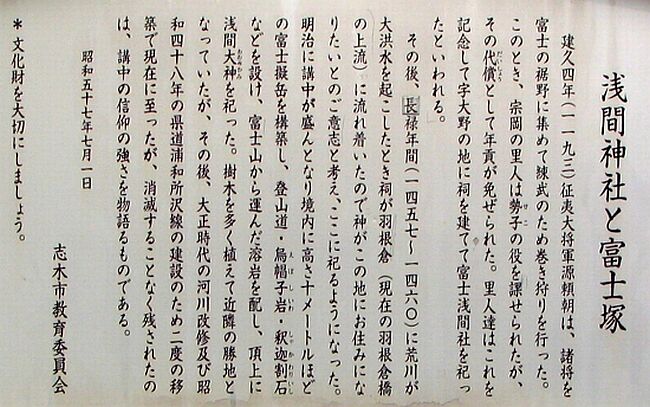 浅間神社と富士塚
建久四年(一一九三)征夷大将軍源頼朝は、諸将を
富士の裾野に集めて練武のため巻き狩りを行った。
このとき、宗岡の里人は勢子の役を課せられたが、
その代償として年貢が免ぜられた。里人達はこれを
記念して字大野の地に祠を建てて富士浅間社を祀っ
たといわれる。
その後、長禄年間(一四五七〜一四六〇)に荒川が
大洪水を起こしたとき祠が羽根倉(現在の羽根倉橋
の上流)に流れ着いたので神がこの地にお住みにな
りたいとのご意志と考え、ここに祀るようになった。
明治に講中が盛んとなり境内に高さ十メートルほど
の富士擬岳を構築し、登山道・烏帽子岩・釈迦割石
などを設け、富士山から運んだ溶岩を配し、頂上に
浅間大神を祀った。樹木を多く植えて近隣の勝地と
なっていたが、その後、大正時代の河川改修及び昭
和四十八年の県道浦和所沢線の建設のため二度の移
築で現在に至ったが、消滅することなく残されたの
は、講中の信仰の強さを物語るものである。
昭和五十七年七月一日
志木市教育委員会
*文化財を大切にしましょう。